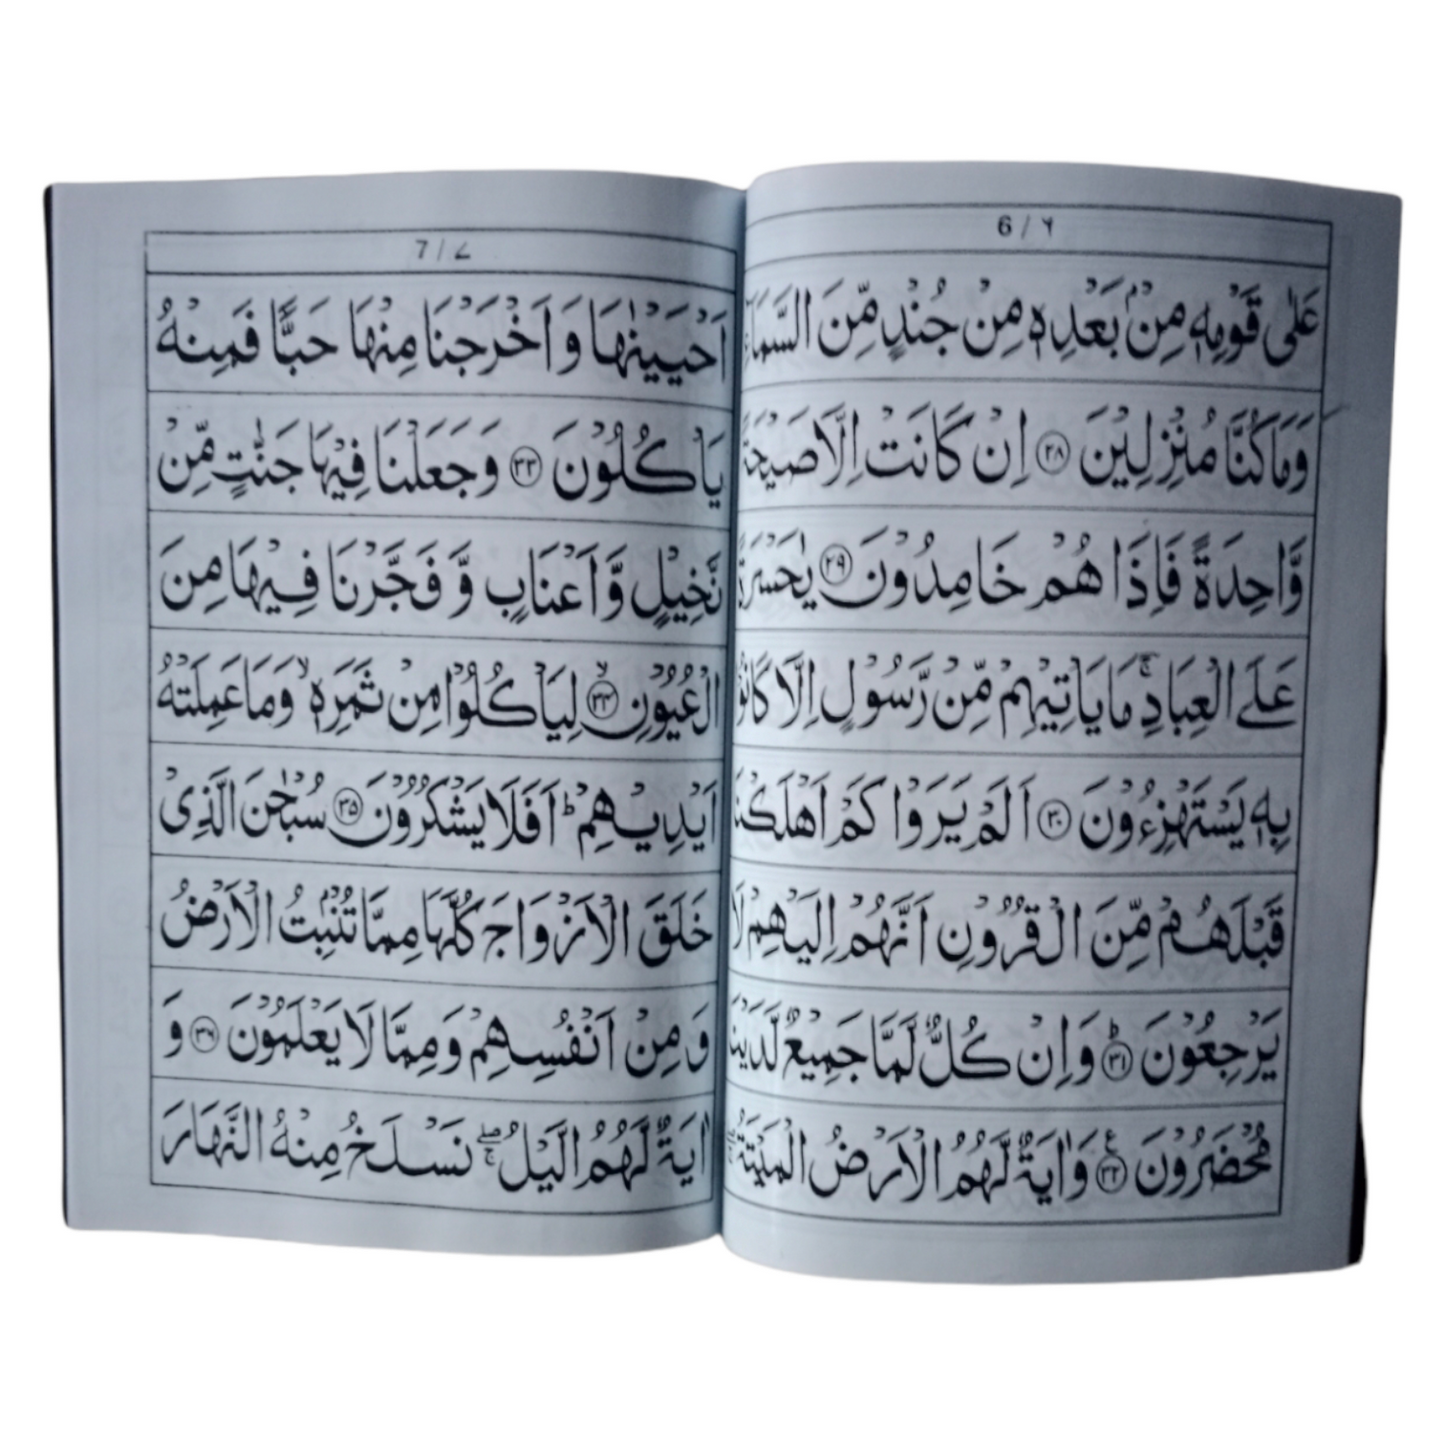 6 / ٦
عَلٰى قَوْمِهٖ مِنْۢ بَعْدِهٖ مِنْ جُنْدٍ مِّنَ السَّمَآءِ
وَمَا كُنَّا مُنْزِلِيْنَ ﴿٢٨﴾ اِنْ كَانَتْ اِلَّا صَيْحَةً
وَّاحِدَةً فَاِذَا هُمْ خَامِدُوْنَ ﴿٢٩﴾ يٰحَسْرَةً
عَلَى الْعِبَادِ ۚ مَا يَاْتِيْهِمْ مِّنْ رَّسُوْلٍ اِلَّا كَانُوْا
بِهٖ يَسْتَهْزِءُوْنَ ﴿٣٠﴾ اَلَمْ يَرَوْا كَمْ اَهْلَكْنَا
قَبْلَهُمْ مِّنَ الْقُرُوْنِ اَنَّهُمْ اِلَيْهِمْ لَا
يَرْجِعُوْنَ ؕ﴿٣١﴾ وَاِنْ كُلٌّ لَّمَّا جَمِيْعٌ لَّدَيْنَا
مُحْضَرُوْنَ ﴿٣٢﴾ وَاٰيَةٌ لَّهُمُ الْاَرْضُ الْمَيْتَةُ
7 / ٧
اَحْيَيْنٰهَا وَاَخْرَجْنَا مِنْهَا حَبًّا فَمِنْهُ
يَاْكُلُوْنَ ﴿٣٣﴾ وَجَعَلْنَا فِيْهَا جَنّٰتٍ مِّنْ
نَّخِيْلٍ وَّاَعْنَابٍ وَّفَجَّرْنَا فِيْهَا مِنَ
الْعُيُوْنِ ۙ﴿٣٤﴾ لِيَاْكُلُوْا مِنْ ثَمَرِهٖ ۙ وَمَا عَمِلَتْهُ
اَيْدِيْهِمْ ؕ اَفَلَا يَشْكُرُوْنَ ﴿٣٥﴾ سُبْحٰنَ الَّذِيْ
خَلَقَ الْاَزْوَاجَ كُلَّهَا مِمَّا تُنْۢبِتُ الْاَرْضُ
وَمِنْ اَنْفُسِهِمْ وَمِمَّا لَا يَعْلَمُوْنَ ﴿٣٦﴾ وَ
اٰيَةٌ لَّهُمُ الَّيْلُ ۖۚ نَسْلَخُ مِنْهُ النَّهَارَ